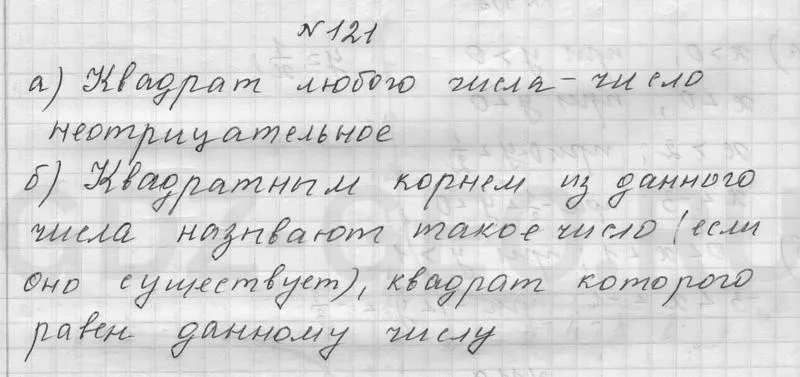 №121
а) Квадрат любого числа – число
неотрицательное
б) Квадратным корнем из данного
числа называют такое число (если
оно существует), квадрат которого
равен данному числу